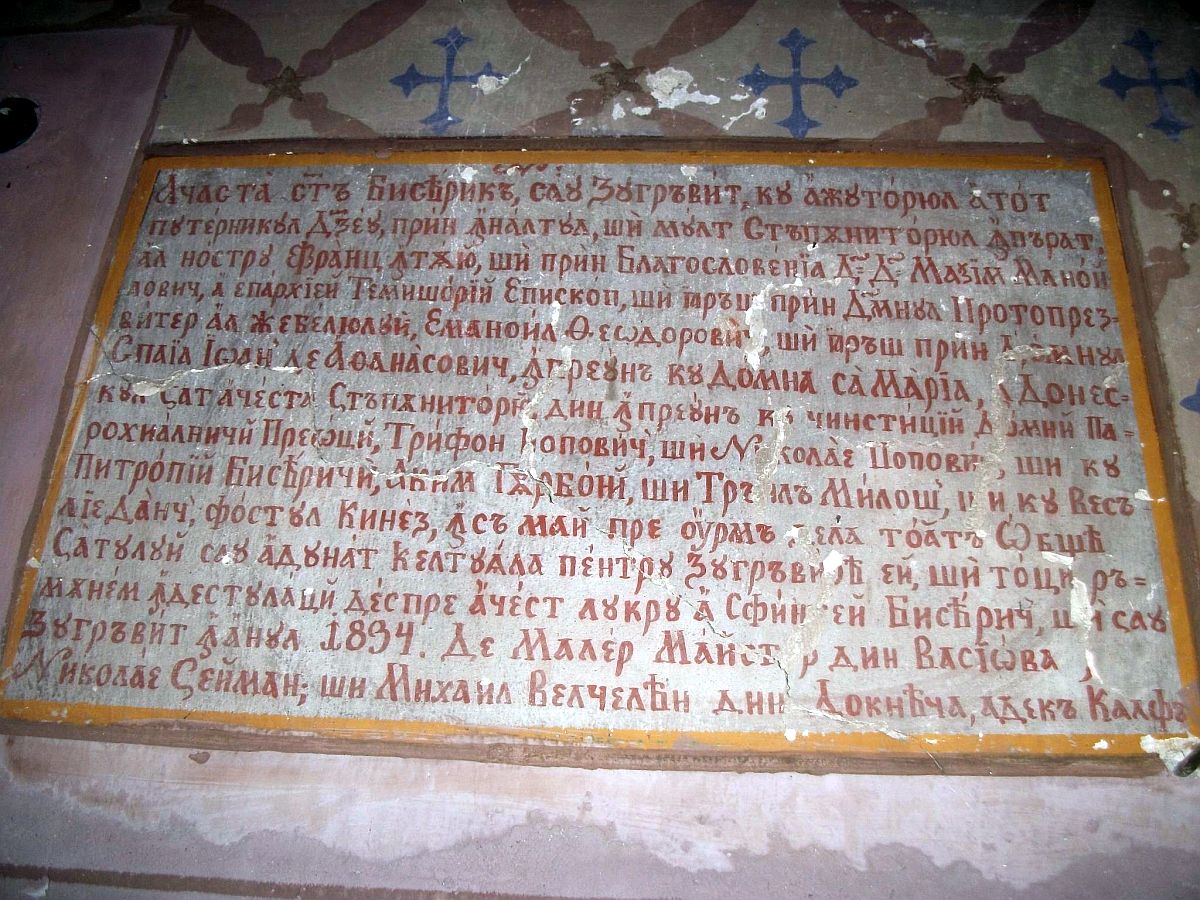 Ачаста̀ ст҃ъ Бисѣ́рикъ, сау Зугръви́т, ку а҆жуто́рюл а҆тот
путе́рникул Дꙋ҃зеу, прин ꙟна́лтул, шѝ му́лт Стъпѫнито́рюл ꙟпърат,
ал но́стру Фра́нц ꙟтѫ́ю, шѝ при́н Благослове́нїа Д҃. Д҃. Маѯи́м Мано́й
лович, а епа́рхїей Темишо́рїй Епископ, шѝ при́н Дⷨнул Протопрез-
витер ал Жебе́люлуй, Емануи́л Ѳеѡдорови́ч, шѝ прин
Спаїа Іѡан де Аѳана́сович, ꙟпреу́нъ ку До́мна са̀ Ма̀рїа, Донес-
кул Сат аче́ста Стъпѫнито́рй, дин ꙟпреу́нъ ку чинсти́цїй До́мний Па-
рохиа́лничй Преѡцй, Три́фон Попови́ч, ши Никола́е Попови́ч, ши ку
Питро́пїй Бисѣ́ричи, Аким Гѫрбо́нй, ши Ми́лош, ши ку Весъ-
лїе Да́нч, фо́стул Кине́з, ꙟсъ май пре у́рмъ дела то́атъ Ѡбщѣ
Са́тулуй сау адуна́т келтуа́ла пе́нтру Зугръви́рѣ ей, шѝ то́ци ръ-
мѫне́м ꙟдестула́цй де́спре аче́ст лукру а Сфи́нтей Бисѣ́ричй, шй сау
Зугръви́т ꙟ а́нул 1834. Де Мале́р Ма́йстор дин Васїѡ́ва
Никола́е Се́йман; ши Михаил Велчеле́н дин Докнѣча, адекъ Калфъ